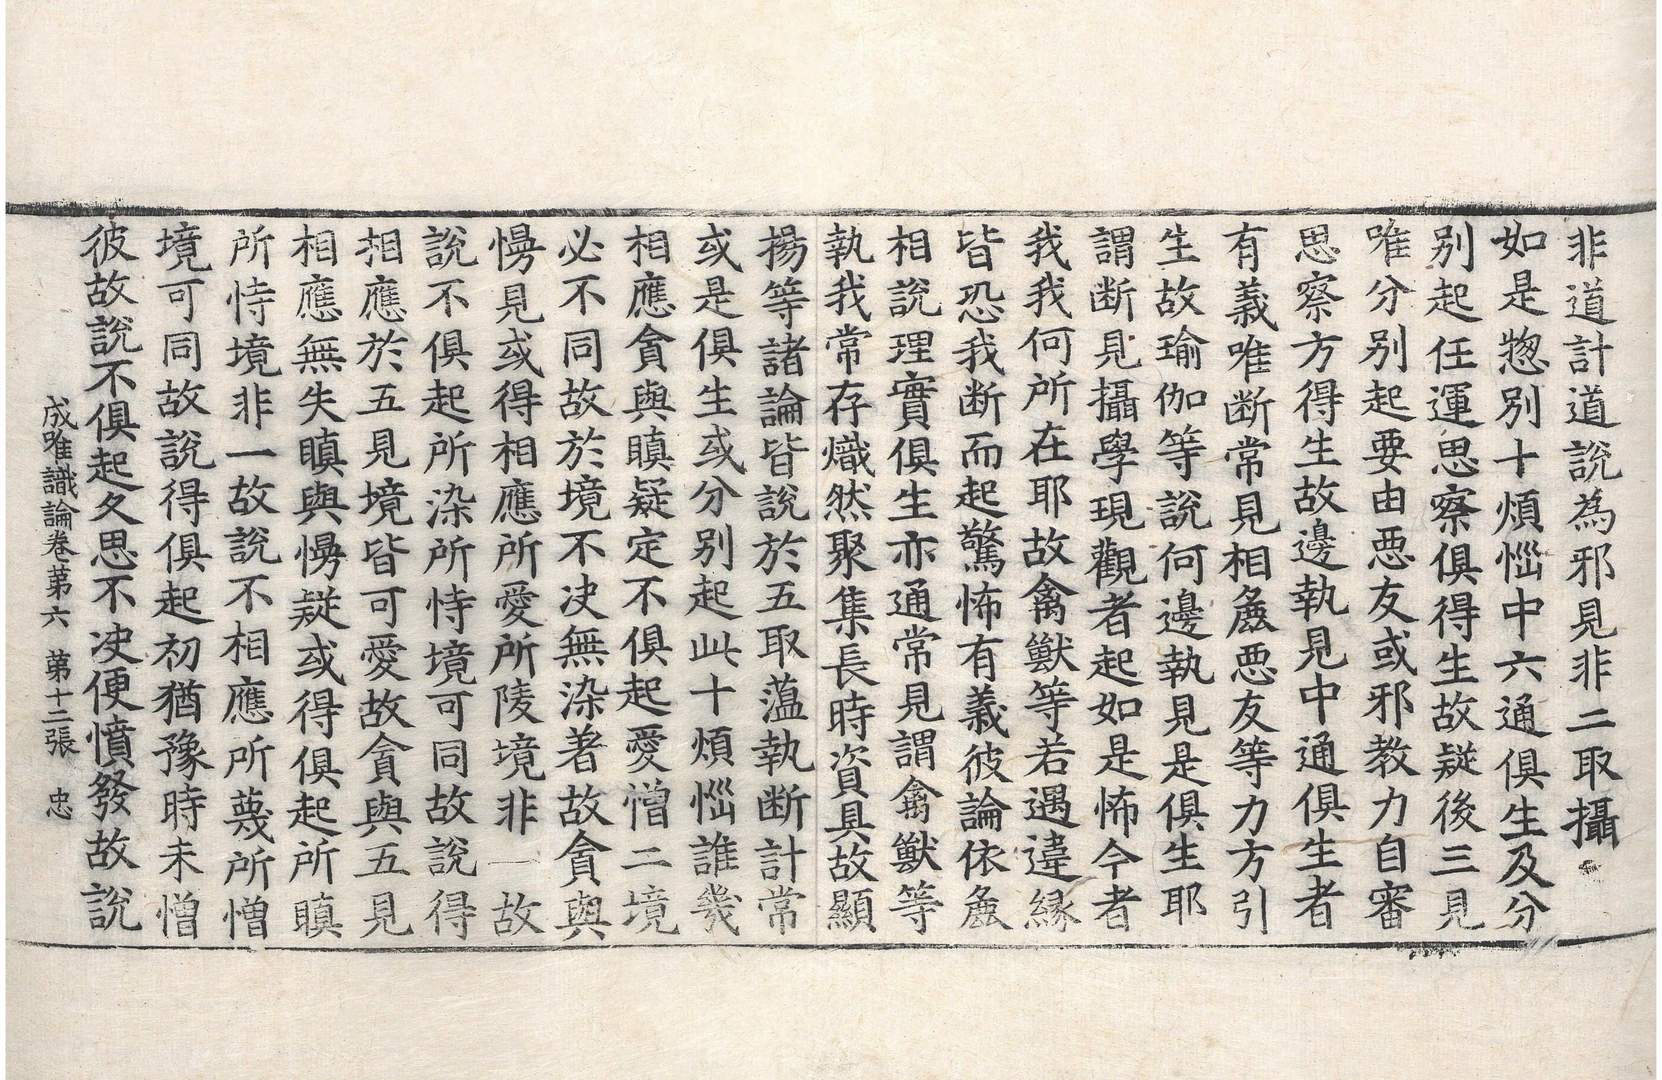 非道計道說為邪見非二取攝
如是惣別十煩惱中六通俱生及分
別起任運思察俱得生故疑後三見
唯分別起要由惡友或邪教力自審
思察方得生故邊執見中通俱生者
有義唯断常見相麁惡友等力方引
生故瑜伽等說何邊執見是俱生耶
謂断見攝學現觀者起如是怖今者
我我何所在耶故禽獸等若遇違縁
皆恐我断而起驚怖有義彼論依麁
相說理實俱生亦通常見謂禽獸等
執我常存熾然聚集長時資具故顯
揚等諸論皆說於五取薀執断計常
或是俱生或分别起此十煩惱誰幾
相應貪與瞋疑定不俱起愛憎二境
必不同故於境不决無染著故貪與
慢見或得相應所愛所陵境非一故
說不俱起所染所恃境可同故說得
相應於五見境皆可愛故貪與五見
相應無失瞋與慢疑或得俱起所瞋
所恃境非一故說不相應所蔑所憎
境可同故說得俱起初猶豫時未憎
彼故說不俱起久思不决便憤發故說
成唯識論卷第六 第十二張 忠